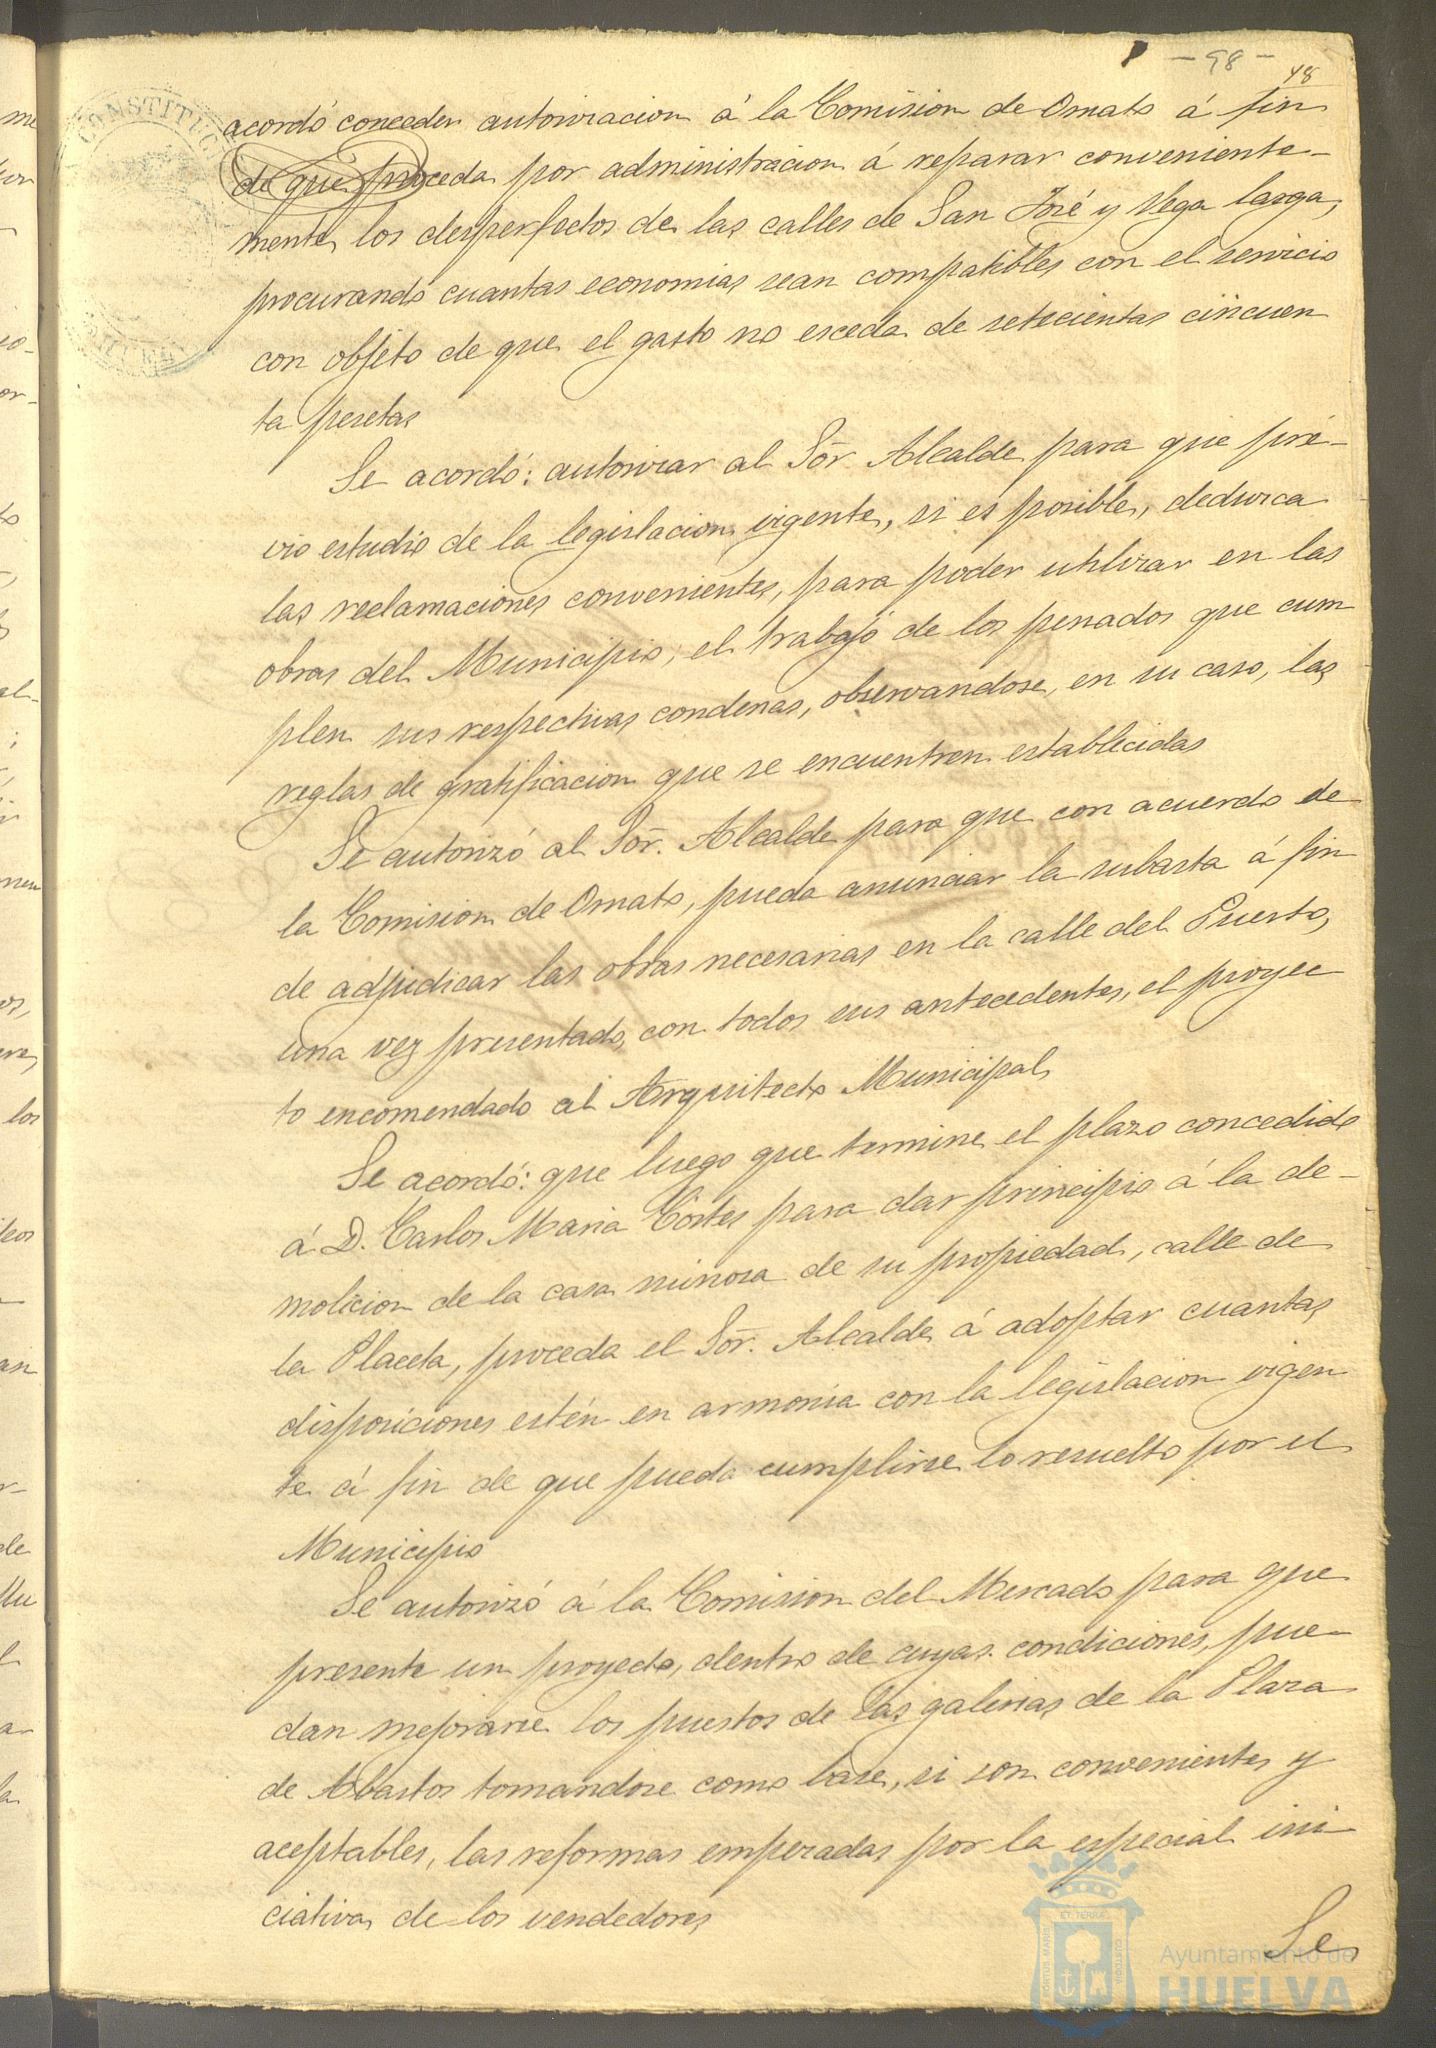 - 98 -
48
acordó conceder autorizacion á la Comision de Ornato á fin
de que proceda por administracion á reparar conveniente-
mente los desperfectos de las calles de San José y Vega larga,
procurando cuantas economias sean compatibles con el servicio
con objeto de que el gasto no esceda de setecientas cincuen
ta pesetas
Se acordó: autorizar al Sōr Alcalde para que pré-
vio estudio de la legislacion vigente, si es posible, deduzca
las reclamaciones convenientes, para poder utilizar en las
obras del Municipio, el trabajo de los penados que cum
plen sus respectivas condenas, observandose, en su caso, las
reglas de gratificacion que se encuentren establecidas
Se autorizó al Sōr. Alcalde para que con acuerdo de
la Comision de Ornato, pueda anunciar la subasta á fin
de adjudicar las obras necesarias en la calle del Puerto,
una vez presentado, con todos sus antecedentes, el proyec
to encomendado al Arquitecto Municipal
Se acordó: que luego que termine el plazo concedido
á D. Carlos Maria Cortes para dar principio á la de-
molicion de la casa ruinosa de su propiedad, calle de
la Placeta, proceda el Sōr. Alcalde á adoptar cuantas
disposiciones estén en armonia con la legislacion vigen
te á fin de que pueda cumplirse lo resuelto por el
Municipio
Se autorizó á la Comision del Mercado para que
presente un proyecto, dentro de cuyas condiciones, pue-
dan mejorarse los puestos de las galerias de la Plaza
de Abastos tomandose como base, si son convenientes y
aceptables, las reformas emperadas por la especial ini
ciativa de los vendedores
Se
Ayuntamiento de
HUELVA